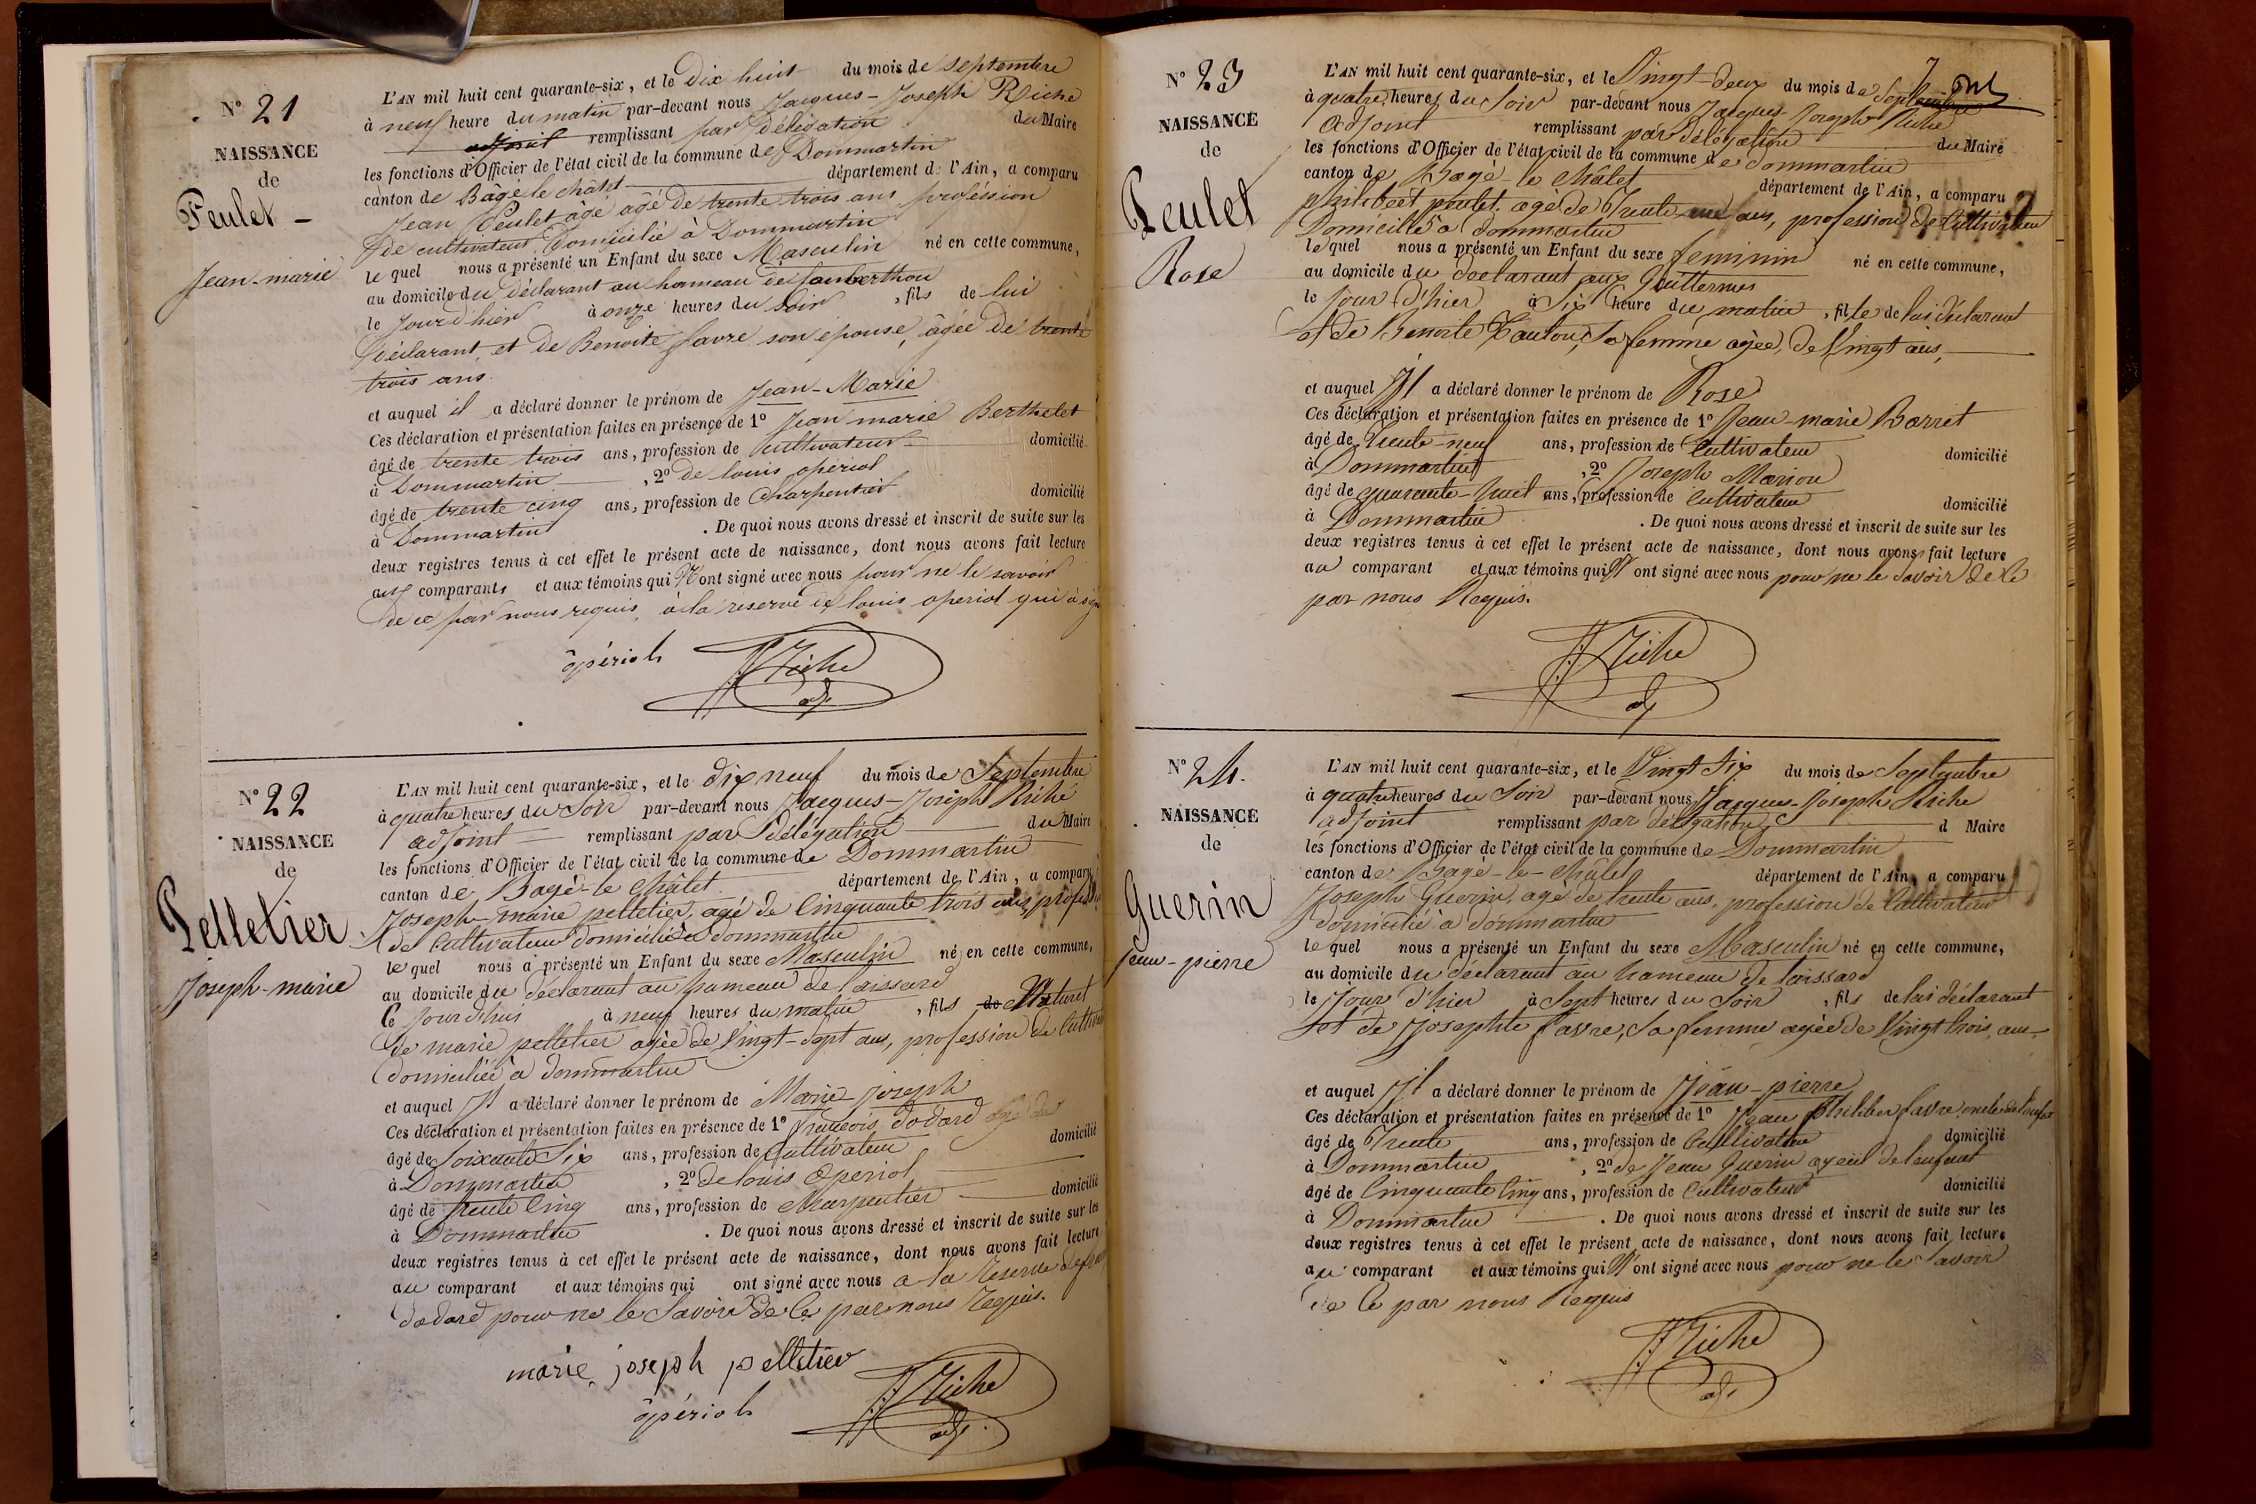 N° 21
NAISSANCE
de
Feulet –
Jean-marie
L'AN mil huit cent quarante-six, et le Dix huit du mois de septembre
à neuf heure du matin par-devant nous Jacques-Joseph Riche
adjoint remplissant par délégation du Maire
les fonctions d'Officier de l'état civil de la commune de Dommartin
canton de Bâgé le châtel département de l'Ain, a comparu
Jean Feulet âgé âgé de trente trois ans profession
de cultivateur Domicilié à Dommartin
le quel nous a présenté un Enfant du sexe Masculin né en cette commune,
au domicile du déclarant au hameau de
le jour d'hier à onze heures du soir, fils de lui
déclarant, et de Benoite favre son épouse, âgée de trente
trois ans.
et auquel il a déclaré donner le prénom de Jean-Marie
Ces déclaration et présentation faites en présence de 1° Jean marie Berthelet
âgé de trente trois ans, profession de Cultivateur domicilié
à Dommartin, 2° de louis opériol
âgé de trente cinq ans, profession de Charpentier domicilié
à Dommartin. De quoi nous avons dressé et inscrit de suite sur les
deux registres tenus à cet effet le présent acte de naissance, dont nous avons fait lecture
aux comparants et aux témoins qui N'ont signé avec nous pour ne le savoir
de ce par nous requis, à la reserve de louis operiol qui à signé
ôpériol
JJRiche
adj.
N° 22
NAISSANCE
de
Pelletier
Joseph-marie
L'AN mil huit cent quarante-six, et le dix neuf du mois de Septembre
à quatre heures du Soir par-devant nous Jacques-Joseph Riche
adjoint remplissant par délégation du Maire
les fonctions d'Officier de l'état civil de la commune de Dommartin
canton de Bagé-le Châtel département de l'Ain, a comparu
Joseph-marie pelletier, agé de Cinquante trois ans, profession
de Cultivateur domicilié à dommartin
le quel nous a présenté un Enfant du sexe Masculin né en cette commune,
au domicile du declarant au hameau de loissard
Ce jourd'hui à neuf heures du matin, fils de Naturel
de marie pelletier agée de Vingt-sept ans, profession de Cultiv
domiciliée à dommartin
et auquel Il a déclaré donner le prénom de Marie-joseph
Ces déclaration et présentation faites en présence de 1° francois dodard
âgé de Soixante Six ans, profession de Cultivateur domicilié
à Dommartin, 2° de louis Operiol
âgé de trente Cinq ans, profession de Charpentier domicilié
à Dommartin. De quoi nous avons dressé et inscrit de suite sur les
deux registres tenus à cet effet le présent acte de naissance, dont nous avons fait lecture
au comparant et aux témoins qui ont signé avec nous a la Reserve de
dodard pour ne le Savoir de Ce par nous Requis.
marie joseph pelletier
ôpériol
JJRiche
adj.
N° 23
NAISSANCE
de
Peulet
Rose
L'AN mil huit cent quarante-six, et le Vingt-deux du mois de Septembre
à quatre heures du Soir par-devant nous Jacques-Joseph Riche
adjoint remplissant par délégation du Maire
les fonctions d'Officier de l'état civil de la commune de dommartin
canton de Bagé le Châtel département de l'Ain, a comparu
philibert poulet agé de Trente ans, profession de Cultivateur
Domicilié à dommartin
le quel nous a présenté un Enfant du sexe feminin né en cette commune,
au domicile du declarant aux
le jour d'hier à Six heure du matin, fille de lui déclarant
et de Benoite, Sa femme agée de Vingt ans,
et auquel Il a déclaré donner le prénom de Rose
Ces déclaration et présentation faites en présence de 1° Jean-marie Barret
âgé de trente-neuf ans, profession de Cultivateur domicilié
à Dommartin, 2° Joseph Marion
âgé de quarante-huit ans, profession de Cultivateur domicilié
à Dommartin. De quoi nous avons dressé et inscrit de suite sur les
deux registres tenus à cet effet le présent acte de naissance, dont nous avons fait lecture
au comparant et aux témoins qui N'ont signé avec nous pour ne le Savoir de Ce
par nous Requis.
JJRiche
adj
N° 24.
NAISSANCE
de
Guerin
Jean-pierre
L'AN mil huit cent quarante-six, et le Vingt Six du mois de Septembre
à quatre heures du Soir par-devant nous Jacques-Joseph Riche
adjoint remplissant par délégation d Maire
les fonctions d'Officier de l'état civil de la commune de Dommartin
canton de Bagé-le-Châtel département de l'Ain, a comparu
Joseph Guerin, agé de trente ans, profession de Cultivateur
domicilié à dommartin
le quel nous a présenté un Enfant du sexe Masculin né en cette commune,
au domicile du déclarant au hameau de loissard
le Jour d'hier à Sept heures du Soir, fils de lui déclarant
et de Josephte favre, Sa femme agée de Vingt trois ans
et auquel Il a déclaré donner le prénom de Jean-pierre
Ces déclaration et présentation faites en présence de 1° Jean philiber favre, oncle de l'enfant
âgé de Trente ans, profession de Cultivateur domicilié
à Dommartin, 2° de Jean Guerin ayeul de l'enfant
âgé de Cinquante Cinq ans, profession de Cultivateur domicilié
à Dommartin. De quoi nous avons dressé et inscrit de suite sur les
deux registres tenus à cet effet le présent acte de naissance, dont nous avons fait lecture
au comparant et aux témoins qui N'ont signé avec nous pour ne le Savoir
de Ce par nous Requis
JJRiche
adj.